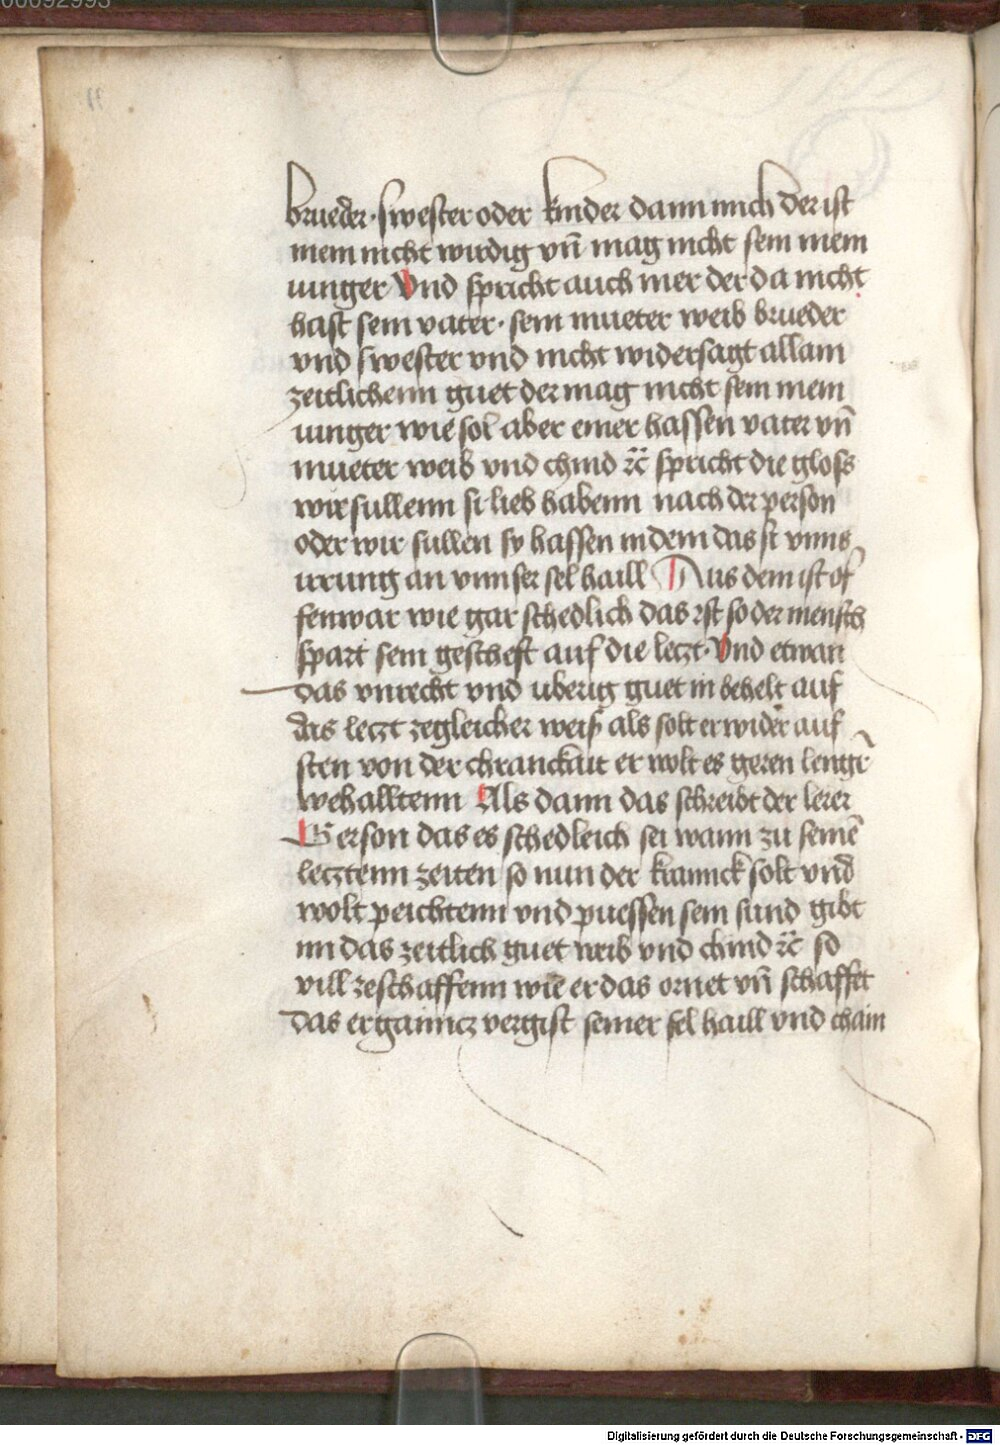 00092993
brueder · swester oder kinder dann mich der ist
mein nicht wirdig vn̄ mag nicht sein mein
iunger Vnd spricht auch mer der da nicht
hast sein vater · sein mueter weib brueder
vnd swester vnd nicht widersagt allam
zeitlichenn guet der mag nicht sein mein
iunger wie sol aber einer hassen vater vn̄
mueter weib vnd chind ꝛc̈ spricht die gloss
wir sullenn si lieb habenn nach der person
oder wir sullen sy hassen in dem das si vnns
irrung an vnnser sel haill Aus dem ist of
fenwar wie gar schedlich das ist so der mensch
spart sein gescheft auf die leczt · Vnd etwan
das vnrecht vnd uberig guet in behelt auf
das leczt zegleicher weiß als solt er wider auf
sten von der chranckait er wolt es geren lengr̄
wehalltenn Als dann das schreibt der lerer
Gerson das es schedleich sei wann zu seinē
lecztenn zeiten so nun der kranck solt vnd
wolt peichtenn vnd puessen sein sund gibt
im das zeitlich guet weib vnd chind ꝛc̈ so
vill zeschaffenn wie er das ornet vn̄ schaffet
das er ganncz vergist seiner sel haill vnd chain
Digitalisierung gefördert durch die Deutsche Forschungsgemeinschaft - DFG